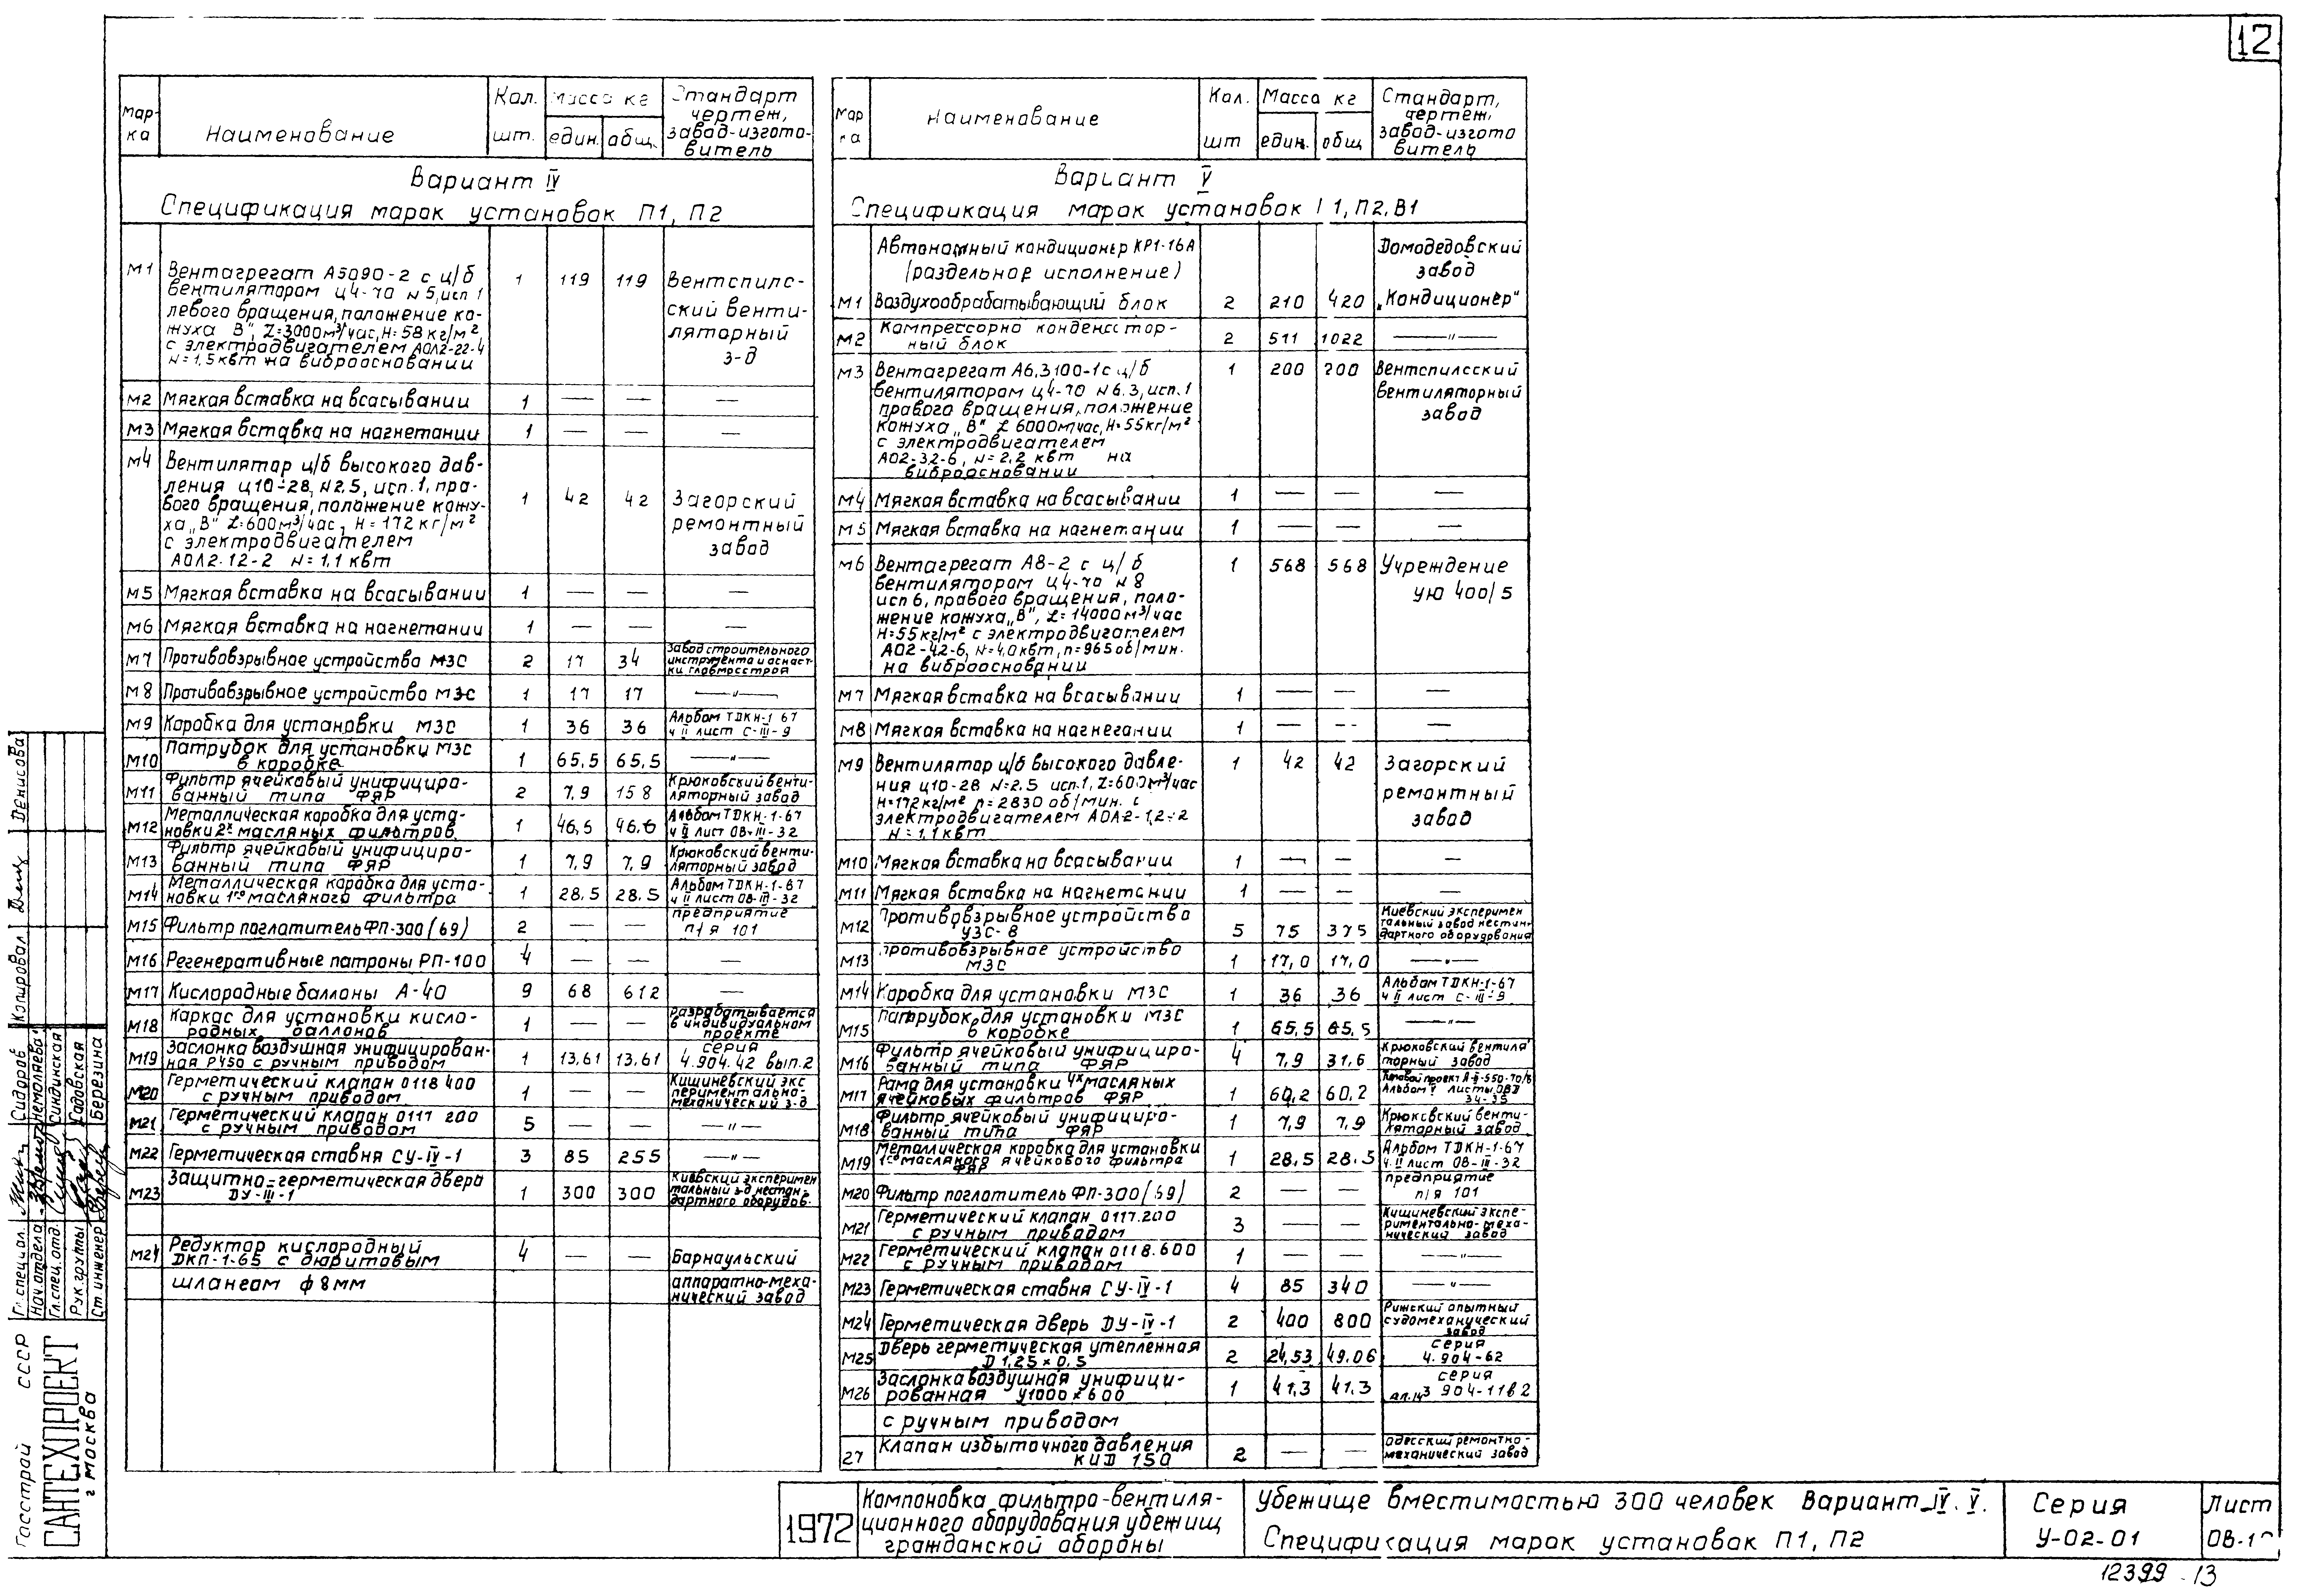 12
Мар-
ка
Наименование
Кол.
шт.
Масса кг
един.
общ.
Стандарт
чертеж,
завод-изгото-
витель
Вариант IV
Спецификация марок установок П1, П2
М1
Вентагрегат А5090-2 с ц/б
вентилятором Ц4-70 №5, исп 1
левого вращения, положение ко-
жуха „В", L=3000м³/час, Н=58кг/м²
с электродвигателем АОЛ2-22-4
N=1,5квт на виброосновании
1
119
119
Вентспилс-
ский венти-
ляторный
з-д
М2 Мягкая вставка на всасывании 1 — — —
М3 Мягкая вставка на нагнетании 1 — — —
М4
Вентилятор ц/б высокого дав-
ления Ц10-28, №2.5, исп.1, пра-
вого вращения, положение кожу-
ха „В" L=600м³/час, Н=172кг/м²
с электродвигателем
АОЛ2-12-2 N=1,1 квт
1
42
42
Загорский
ремонтный
завод
М5 Мягкая вставка на всасывании 1 — — —
М6 Мягкая вставка на нагнетании 1 — — —
М7 Противовзрывное устройство МЗС 2 17 34
Завод строительного
инструмента и оснаст-
ки главмосстроя
М8 Противовзрывное устройство МЗС 1 17 17 —"—
М9 Коробка для установки МЗС 1 36 36
Альбом ТДКН-1 67
ч II лист С-III-9
М10
Патрубок для установки МЗС
в коробке
1 65,5 65,5 —"—
М11
Фильтр ячейковый унифициро-
ванный типа ФЯР
2 7,9 15 8
Крюковский венти-
ляторный завод
М12
Металлическая коробка для уста-
новки 2х масляных фильтров
1 46,5 46,6
Альбом ТДКН-1-67
ч II лист ОВ-III-32
М13
Фильтр ячейковый унифициро-
ванный типа ФЯР
1 7,9 7,9
Крюковский венти-
ляторный завод
М14
Металлическая коробка для уста-
новки 1го масляного фильтра
1 28,5 28,5
Альбом ТДКН-1-67
ч II лист ОВ-III-32
М15 Фильтр поглотитель ФП-300 (69) 2 — —
предприятие
п/я 101
М16 Регенеративные патроны РП-100 4 — — —
М17 Кислородные баллоны А-40 9 68 612 —
М18
Каркас для установки кисло-
родных баллонов
1 — —
разрабатывается
в индивидуальном
проекте
М19
Заслонка воздушная унифицирован-
ная Р450 с ручным приводом
1 13,61 13,61
серия
4.904.42 вып.2
М20
Герметический клапан 0118 400
с ручным приводом
1 — —
Кишиневский экс
периментально-
механический з-д
М21
Герметический клапан 0117 200
с ручным приводом
5 — — —"—
М22 Герметическая ставня СУ-IV-1 3 85 255 —"—
М23
Защитно-герметическая дверь
ДУ-III-1
1 300 300
Киевский эксперимен
тальный з-д нестан-
дартного оборудов.
М24
Редуктор кислородный
ДКП-1-65 с дюритовым
шлангом ф 8мм
4 — —
Барнаульский
аппаратно-меха-
нический завод
Мар
ка
Наименование
Кол.
шт
Масса кг
един.
общ
Стандарт,
чертеж,
завод-изгото
витель
Вариант V
Спецификация марок установок 1, П2, В1
Автономный кондиционер КР1-16А
(раздельное исполнение)
Домодедовский
завод
М1 Воздухообрабатывающий блок 2 210 420 „Кондиционер"
М2
Компрессорно конденсатор-
ный блок
2 511 1022 —"—
М3
Вентагрегат А6,3100-1 с ц/б
вентилятором Ц4-70 №6.3, исп.1
правого вращения, положение
кожуха „В" L 6000м³/час, Н=55кг/м²
с электродвигателем
АО2-32-6, N=2,2 квт на
виброосновании
1
200
200
Вентспилсский
вентиляторный
завод
М4 Мягкая вставка на всасывании 1 — — —
М5 Мягкая вставка на нагнетании 1 — — —
М6
Вентагрегат А8-2 с ц/б
вентилятором Ц4-70 №8
исп 6, правого вращения, поло-
жение кожуха „В", L=14000м³/час
Н=55кг/м² с электродвигателем
АО2-42-6, N=4,0квт, n=965об/мин.
на виброосновании
1
568
568
Учреждение
УЮ 400/5
М7 Мягкая вставка на всасывании 1 — — —
М8 Мягкая вставка на нагнетании 1 — — —
М9
Вентилятор ц/б высокого давле-
ния Ц10-28 №2.5 исп.1, L=600м³/час
Н=172кг/м² n=2830 об/мин. с
электродвигателем АОЛ2-1,2-2
N=1,1квт
1
42
42
Загорский
ремонтный
завод
М10 Мягкая вставка на всасывании 1 — — —
М11 Мягкая вставка на нагнетании 1 — — —
М12
Противовзрывное устройство
УЗС-8
5 75 375
Киевский эксперимен
тальный завод нестан-
дартного оборудования
М13
Противовзрывное устройство
МЗС
1 17,0 17,0 —"—
М14 Коробка для установки МЗС 1 36 36
Альбом ТДКН-1-67
ч II лист С-III-9
М15
Патрубок для установки МЗС
в коробке
1 65,5 65,5 —"—
М16
Фильтр ячейковый унифициро-
ванный типа ФЯР
4 7,9 31,6
Крюковский вентиля
торный завод
М17
Рама для установки 4х масляных
ячейковых фильтров ФЯР
1 60,2 60,2
Типовой проект А-II-550-70/8
Альбом V листы ОВД
34-35
М18
Фильтр ячейковый унифициро-
ванный типа ФЯР
1 7,9 7,9
Крюковский венти-
ляторный завод
М19
Металлическая коробка для установки
1го масляного ячейкового фильтра
ФЯР
1 28,5 28,5
Альбом ТДКН-1-67
ч.II лист ОВ-III-32
М20 Фильтр поглотитель ФП-300 (69) 2 — —
предприятие
п/я 101
М21
Герметический клапан 0117.200
с ручным приводом
3 — —
Кишиневский экспе-
риментально-меха-
нический завод
М22
Герметический клапан 0118.600
с ручным приводом
1 — — —"—
М23 Герметическая ставня СУ-IV-1 4 85 340 —"—
М24 Герметическая дверь ДУ-IV-1 2 400 800
Рижский опытный
судомеханический
завод
М25
Дверь герметическая утепленная
Д 1,25×0,5
2 24,53 49,06
серия
4.904-62
М26
Заслонка воздушная унифици-
рованная У1000×600
с ручным приводом
1 41,3 41,3
серия
904-11в2
27
Клапан избыточного давления
КИД 150
2 — —
Одесский ремонтно-
механический завод
Денисова
Копировал
Сидоров
Синдинская
Садовская
Березина
Гл. специал.
Нач. отдела
Гл. спец. отд.
Рук. группы
Ст. инженер
Госстрой СССР
САНТЕХПРОЕКТ
г Москва
1972
Компоновка фильтро-вентиля-
ционного оборудования убежищ
гражданской обороны
Убежище вместимостью 300 человек Вариант IV. V.
Спецификация марок установок П1, П2
Серия
У-02-01
Лист
ОВ-1
12399 - 13